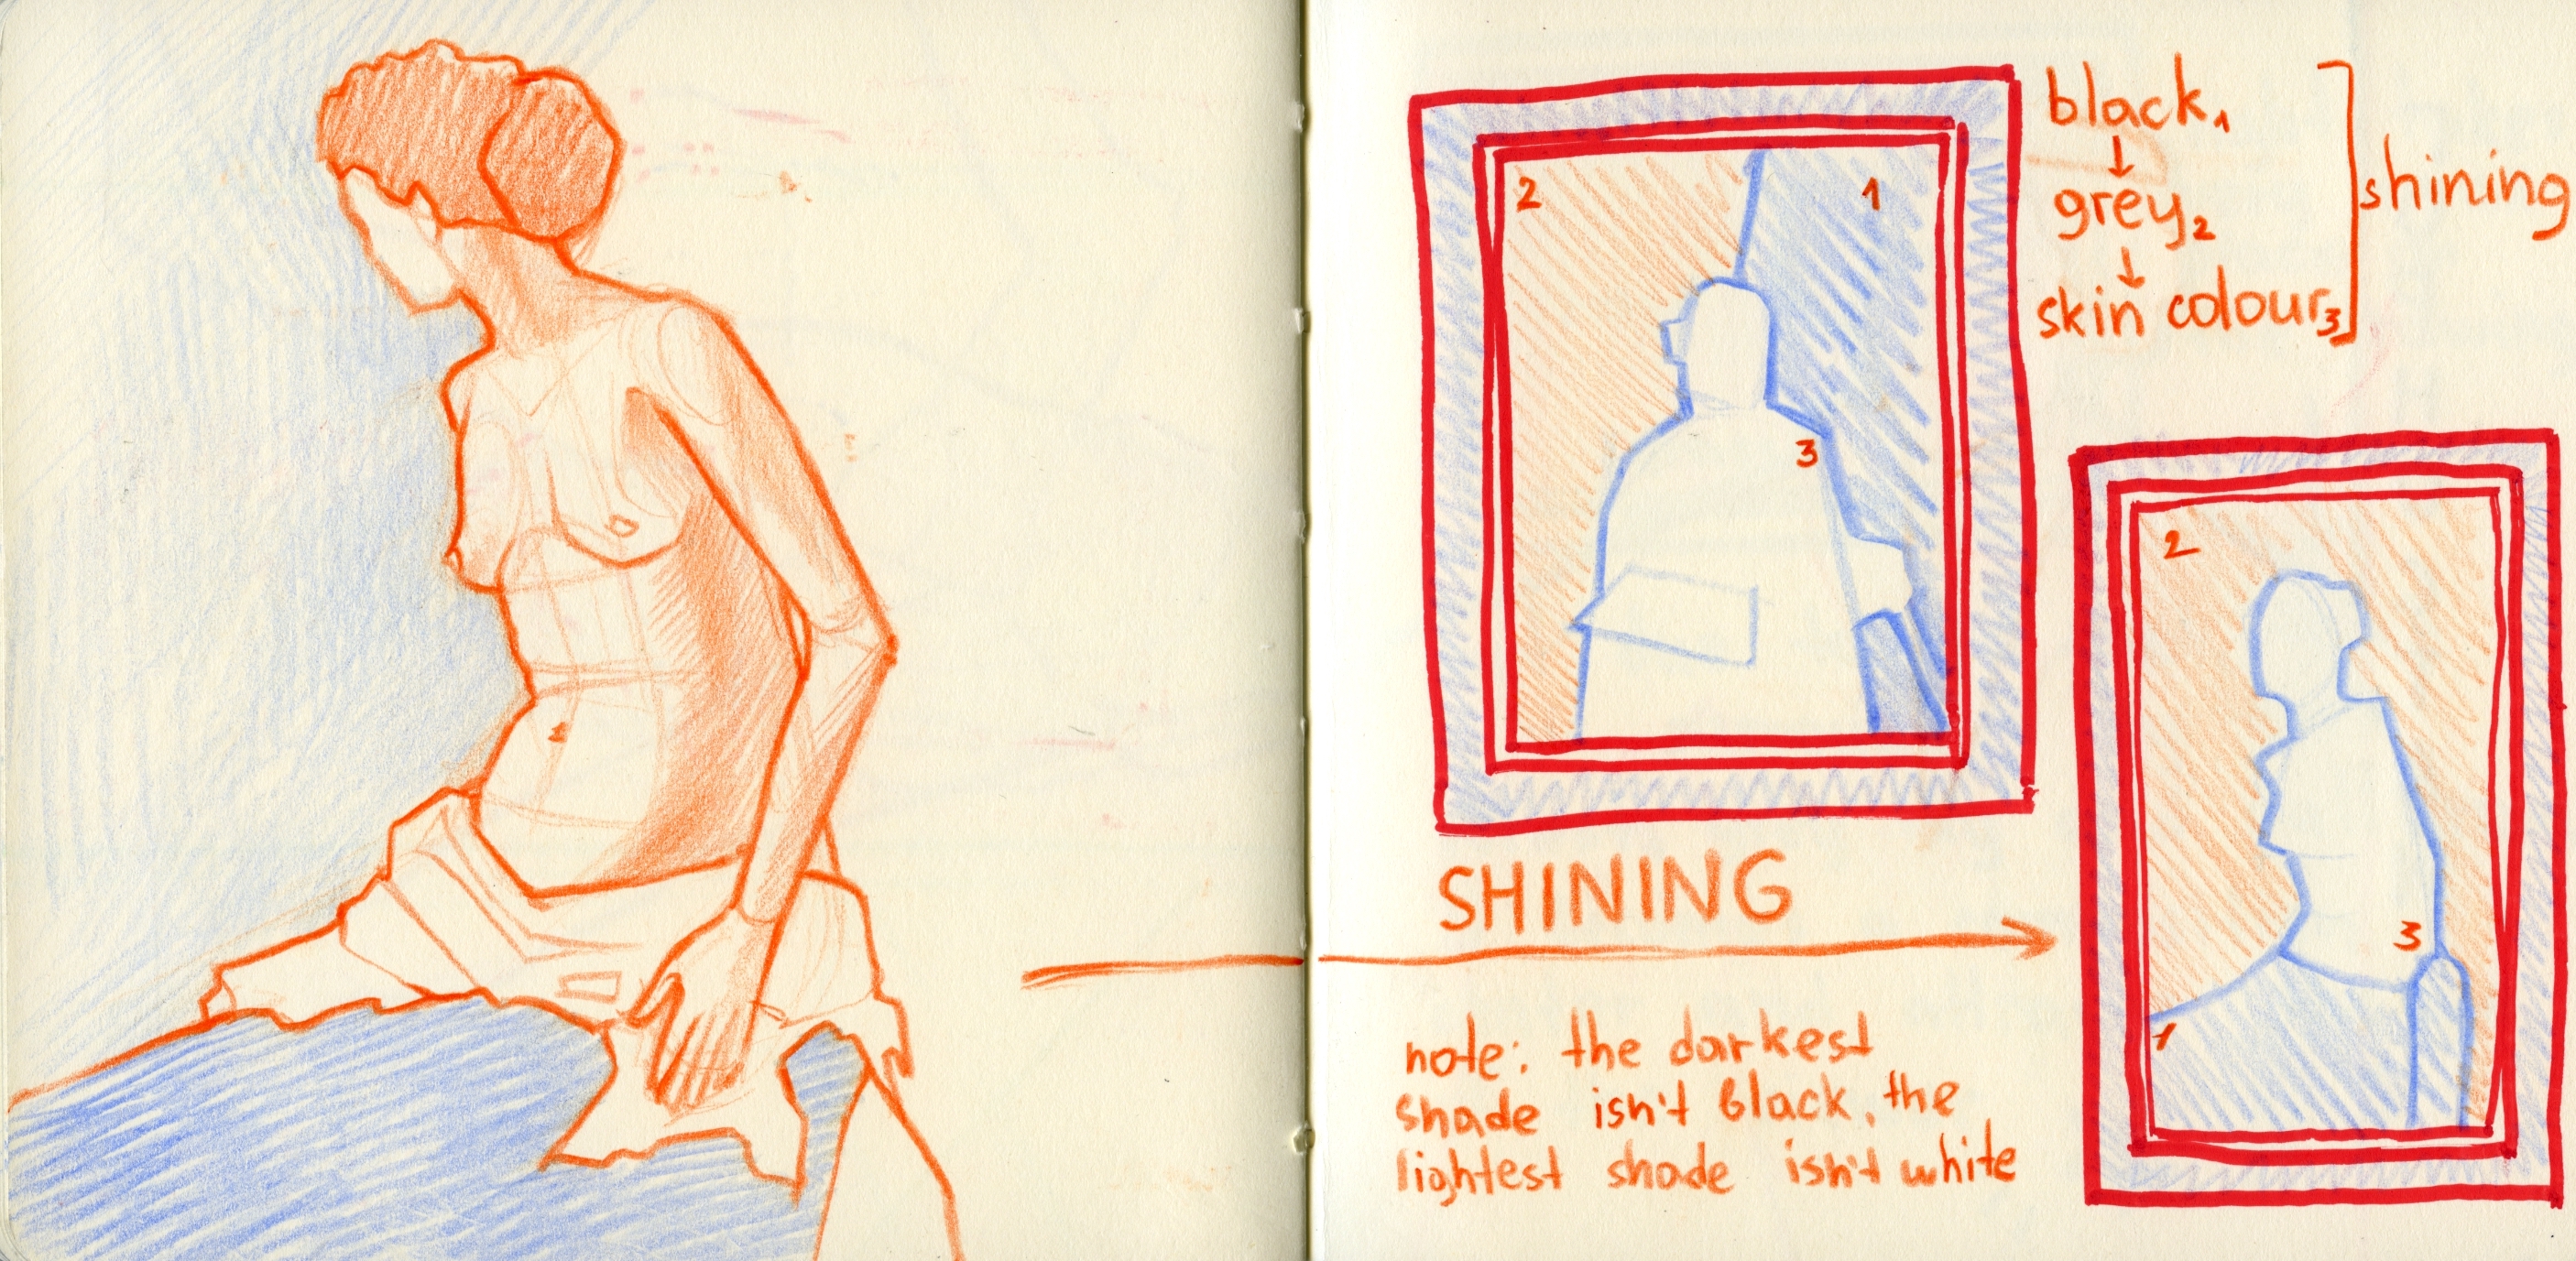 black 1
↓
grey 2
↓
skin colour 3
shining
2
1
3
2
1
3
SHINING
note: the darkest
shade isn't black, the
lightest shade isn't white